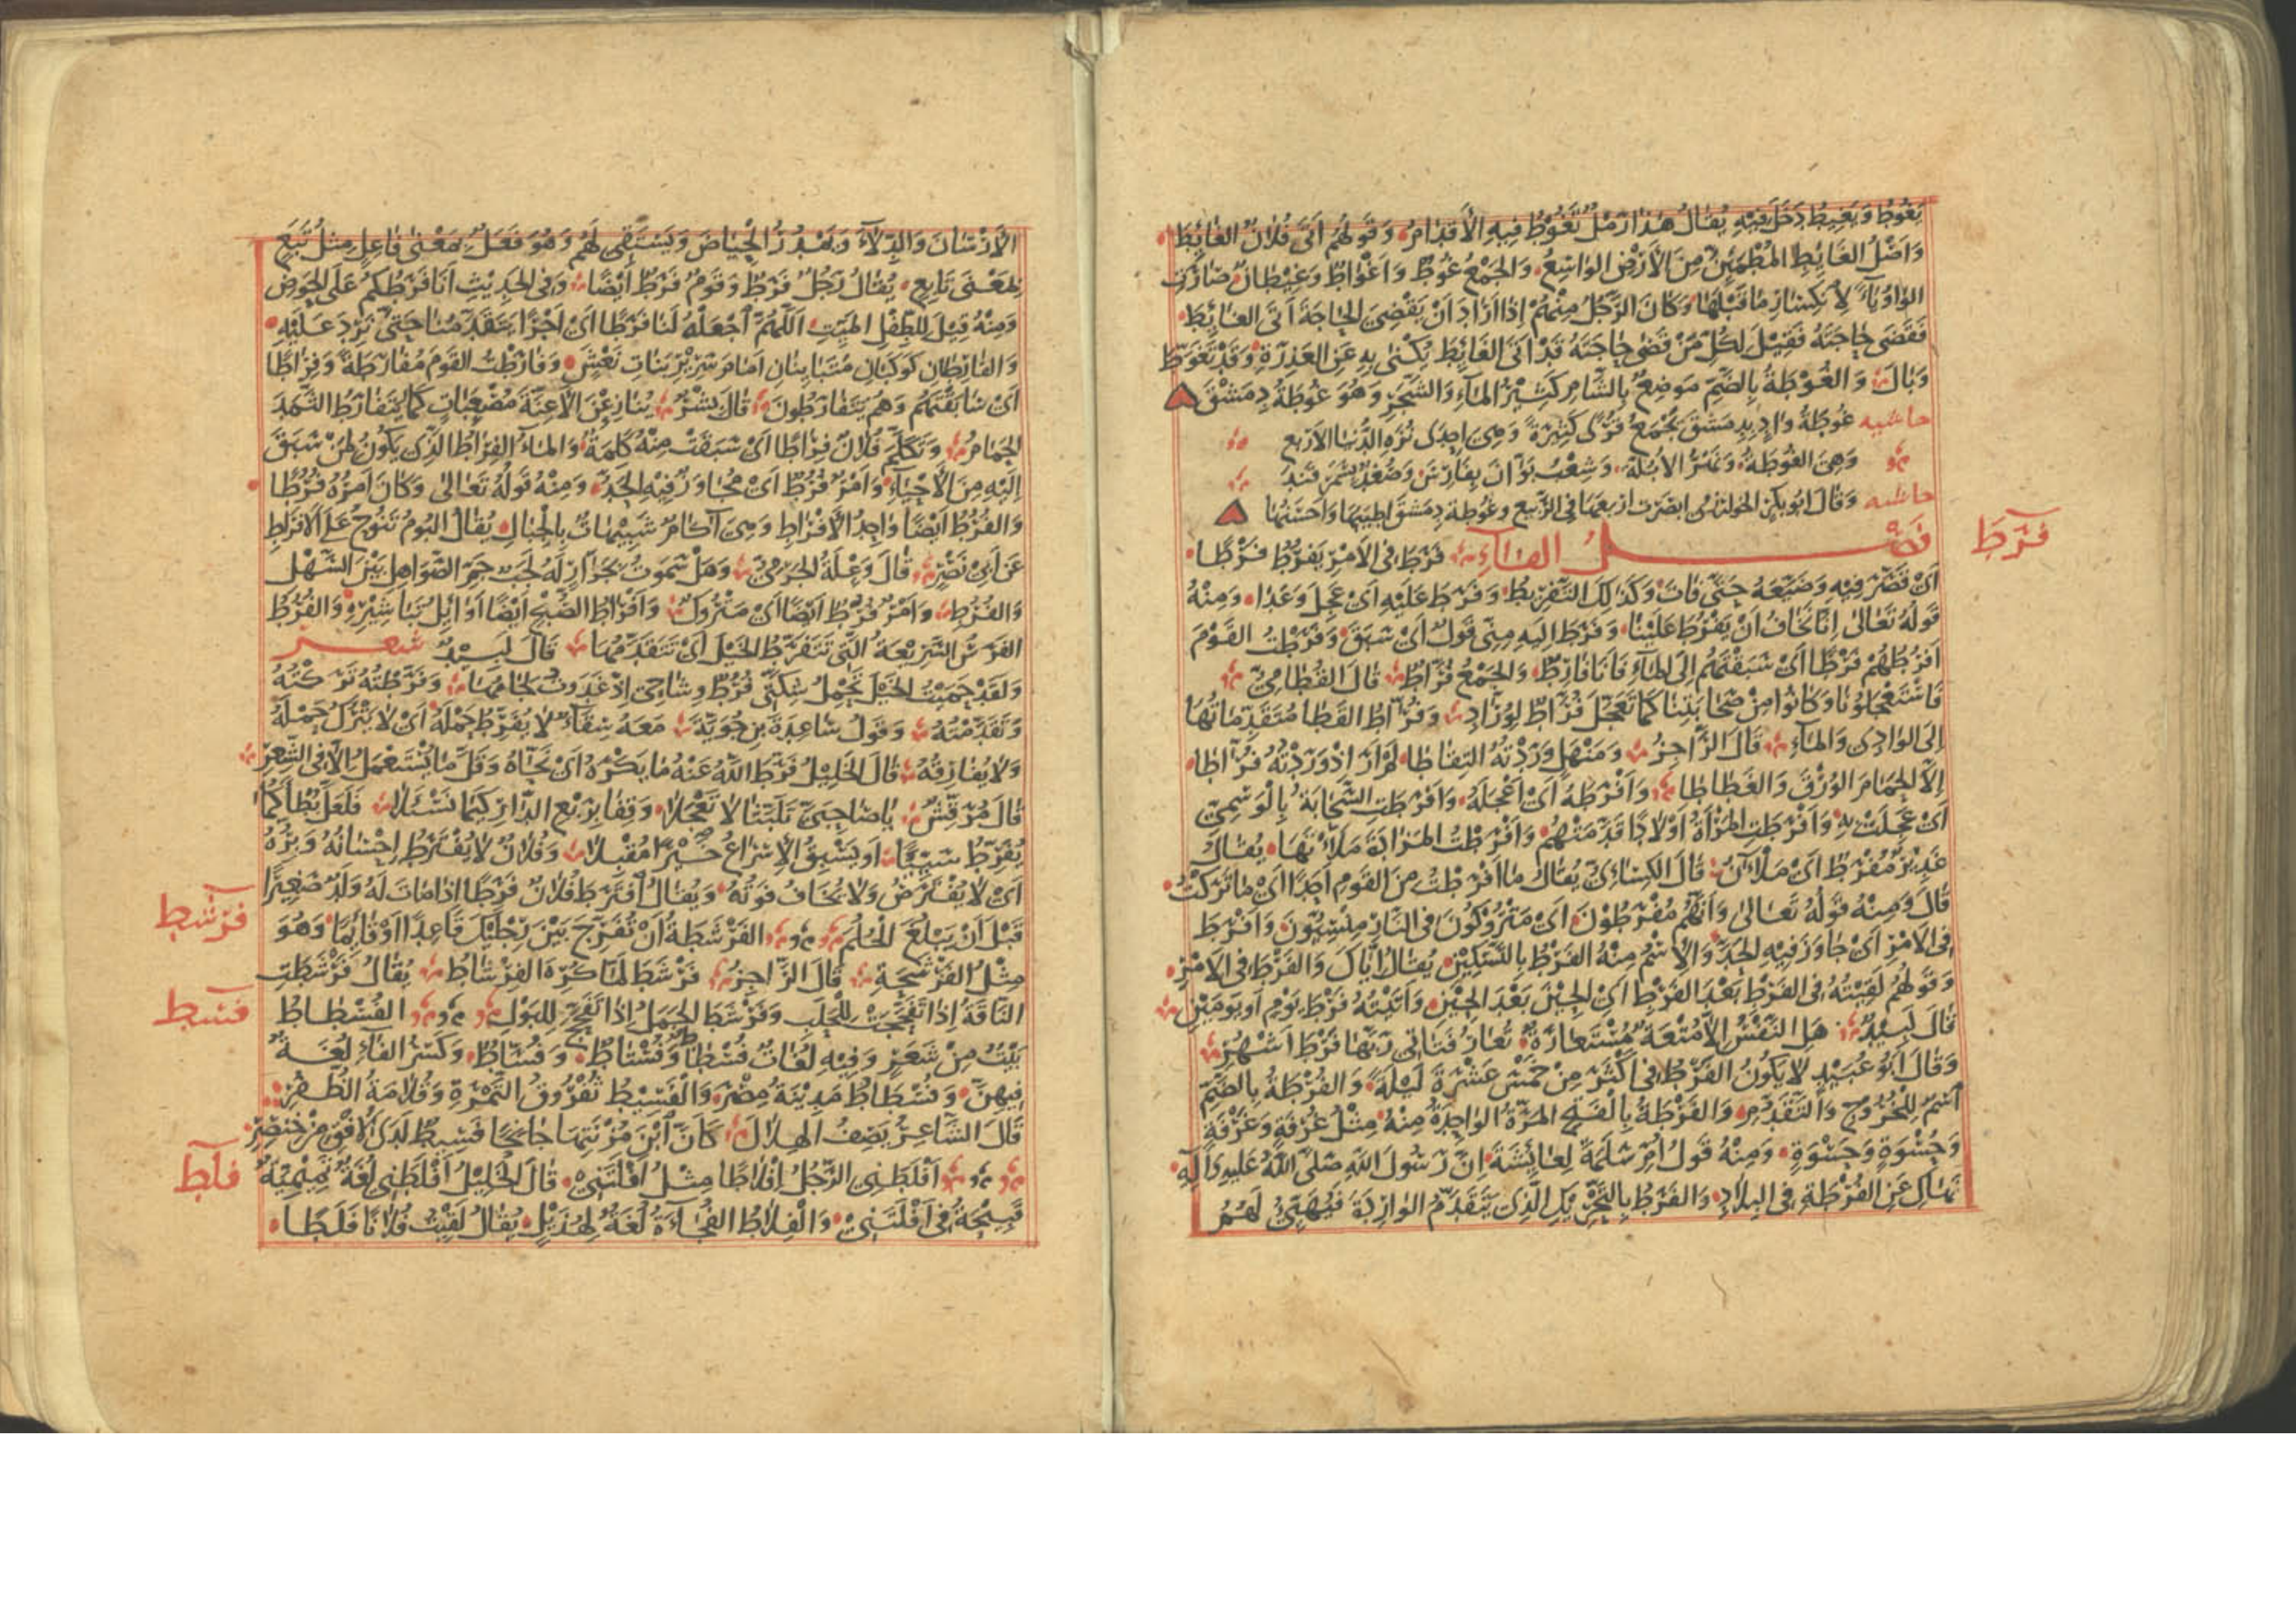 يَغُوطُ وَيَغِيطُ دَخَلَ فِيهِ يُقَالُ هٰذَا رَمْلٌ تَغُوطُ فِيهِ الْأَقْدَامُ وَقَوْلُهُمْ أَتَى فُلَانٌ الغَائِطَ
وَأَصْلُ الغَائِطِ المُطْمَئِنُّ مِنَ الْأَرْضِ الوَاسِعُ وَالجَمْعُ غُوطٌ وَأَغْوَاطٌ وَغِيطَانٌ صَارَتِ
الوَاوُ يَاءً لِانْكِسَارِ مَا قَبْلَهَا وَكَانَ الرَّجُلُ مِنْهُمْ إِذَا أَرَادَ أَنْ يَقْضِيَ الحَاجَةَ أَتَى الغَائِطَ
فَقَضَى حَاجَتَهُ فَقِيلَ لِكُلِّ مَنْ قَضَى حَاجَتَهُ قَدْ أَتَى الغَائِطَ يُكْنَى بِهِ عَنِ العَذِرَةِ وَقَدْ تَغَوَّطَ
وَبَالَ وَالغُوطَةُ بِالضَّمِّ مَوضِعٌ بِالشَّامِ كَثِيرُ المَاءِ وَالشَّجَرِ وَهُوَ غُوطَةُ دِمَشْقَ
حاشيه غوطَةُ وادٍ بدِمَشْقَ يَجْمَعُ قُرًى كَثِيرَةً وَهِيَ إِحْدَى نُزَهِ الدُّنْيَا الأَرْبَعِ
وَهِيَ الغُوطَةُ وَنَهْرُ الأُبُلَّةِ وَشِعْبُ بَوَّانَ بِفَارِسَ وَصُغْدُ سَمَرْقَنْدَ
حاشيه وَقَالَ ابُو بكر الخوارزمى ابصَرت اربعها فى الرَّبيع وغُوطة دِمَشْقَ اطيبها وَاحسَنُهَا
فَصْلُ الفَاءِ فَرَطَ فِي الأَمْرِ يَفْرُطُ فَرْطًا
فَرَطَ
أَيْ قَصَّرَ فِيهِ وَضَيَّعَهُ حَتَّى فَاتَ وَكَذٰلِكَ التَّفْرِيطُ وَفَرَطَ عَلَيْهِ أَيْ عَجِلَ وَعَدَا وَمِنْهُ
قَولُهُ تَعَالَى إِنَّا نَخَافُ أَنْ يَفْرُطَ عَلَيْنَا وَفَرَطَ إِلَيْهِ مِنِّي قَولٌ أَيْ سَبَقَ وَفَرَطْتُ القَوْمَ
أَفْرُطُهُمْ فَرْطًا أَيْ سَبَقْتُهُمْ إِلَى المَاءِ فَأَنَا فَارِطٌ وَالجَمْعُ فُرَّاطٌ قَالَ القُطَامِيُّ
فَاسْتَعْجَلُونَا وَكَانُوا مِنْ صَحَابَتِنَا كَمَا تَعَجَّلَ فُرَّاطٌ لِوُرَّادِ وَفُرَّاطُ القَطَا مُتَقَدِّمَاتُهَا
إِلَى الوَادِي وَالمَاءِ قَالَ الرَّاجِزُ وَمَنْهَلٍ وَرَدْتُهُ التِقَاطَا لَمْ أَرَ إِذْ وَرَدْتُهُ فُرَّاطَا
إِلَّا الحَمَامَ الوُرْقَ وَالغَطَاطَا وَأَفْرَطَهُ أَيْ أَعْجَلَهُ وَأَفْرَطَتِ السَّحَابَةُ بِالْوَسْمِيِّ
أَيْ عَجِلَتْ بِهِ وَأَفْرَطَتِ المَرْأَةُ أَوْلَادًا قَدَّمَتْهُمْ وَأَفْرَطْتُ المَزَادَةَ مَلَأْتُهَا يُقَالُ
غَدِيرٌ مُفْرَطٌ أَيْ مَلْآنُ قَالَ الكِسَائِيُّ يُقَالُ مَا أَفْرَطْتُ مِنَ القَوْمِ أَحَدًا أَيْ مَا تَرَكْتُ
قَالَ وَمِنْهُ قَوْلُهُ تَعَالَى وَأَنَّهُمْ مُفْرَطُونَ أَيْ مَتْرُوكُونَ فِي النَّارِ مَنْسِيُّونَ وَأَفْرَطَ
فِي الأَمْرِ أَيْ جَاوَزَ فِيهِ الحَدَّ وَالِاسْمُ مِنْهُ الفَرْطُ بِالتَّسْكِينِ يُقَالُ إِيَّاكَ وَالفَرْطَ فِي الأَمْرِ
وَقَوْلُهُمْ لَقِيتُهُ فِي الفَرْطِ بَعْدَ الفَرْطِ أَيِ الحِينَ بَعْدَ الحِينِ وَأَتَيْتُهُ فَرْطَ يَوْمٍ أَوْ يَوْمَيْنِ
قَالَ لَبِيدٌ هَلِ النَّفْسُ إِلَّا مُتْعَةٌ مُسْتَعَارَةٌ تُعَارُ فَتَأْتِي رَبَّهَا فَرْطَ أَشْهُرِ
وَقَالَ أَبُو عُبَيْدٍ لَا يَكُونُ الفَرْطُ فِي أَكْثَرَ مِنْ خَمْسَ عَشْرَةَ لَيْلَةً وَالفُرْطَةُ بِالضَّمِّ
اسْمٌ لِلْخُرُوجِ وَالتَّقَدُّمِ وَالفَرْطَةُ بِالْفَتْحِ المَرَّةُ الوَاحِدَةُ مِنْهُ مِثْلُ غُرْفَةٍ وَغَرْفَةٍ
وَحُسْوَةٍ وَحَسْوَةٍ وَمِنْهُ قَولُ أُمِّ سَلَمَةَ لِعَائِشَةَ إِنَّ رَسُولَ اللهِ صَلَّى اللهُ عَلَيْهِ وَآلِهِ
نَهَاكِ عَنِ الفُرْطَةِ فِي البِلَادِ وَالفَرَطُ بِالتَّحْرِيكِ الَّذِي يَتَقَدَّمُ الوَارِدَةَ فَيُهَيِّئُ لَهُمُ
الأَرْسَانَ وَالدِّلَاءَ وَيَمْدُرُ الحِيَاضَ وَيَسْتَقِي لَهُمْ وَهُوَ فَعَلٌ بِمَعْنَى فَاعِلٍ مِثْلُ تَبَعٍ
بِمَعْنَى تَابِعٍ يُقَالُ رَجُلٌ فَرَطٌ وَقَومٌ فَرَطٌ أَيْضًا وَفِي الحَدِيثِ أَنَا فَرَطُكُمْ عَلَى الحَوْضِ
وَمِنْهُ قِيلَ لِلطِّفْلِ المَيِّتِ اللَّهُمَّ اجْعَلْهُ لَنَا فَرَطًا أَيْ أَجْرًا يَتَقَدَّمُنَا حَتَّى نَرِدَ عَلَيْهِ
وَالفَارِطَانِ كَوكَبَانِ مُتَبَايِنَانِ أَمَامَ سَرِيرِ بَنَاتِ نَعْشٍ وَفَارَطْتُ القَوْمَ مُفَارَطَةً وَفِرَاطًا
أَيْ سَابَقْتُهُمْ وَهُمْ يَتَفَارَطُونَ قَالَ بِشْرٌ يُنَازِعْنَ الأَعِنَّةَ مُصْغِيَاتٍ كَمَا يَتَفَارَطُ الثَّمَدَ
الحَمَامُ وَتَكَلَّمَ فُلَانٌ فِرَاطًا أَيْ سَبَقَتْ مِنْهُ كَلِمَةٌ وَالمَاءُ الفِرَاطُ الَّذِي يَكُونُ لِمَنْ سَبَقَ
إِلَيْهِ مِنَ الأَحْيَاءِ وَأَمْرٌ فُرُطٌ أَيْ مُجَاوَزٌ فِيهِ الحَدُّ وَمِنْهُ قَولُهُ تَعَالَى وَكَانَ أَمْرُهُ فُرُطًا
وَالفُرُطُ أَيْضًا وَاحِدُ الأَفْرَاطِ وَهِيَ آكَامٌ شَبِيهَاتٌ بِالْجِبَالِ يُقَالُ البُومُ تَنُوحُ عَلَى الأَفْرَاطِ
عَنْ أَبِي نَصْرٍ قَالَ وَعْلَةُ الجَرْمِيُّ وَهَلْ سَمَوتُ بِجَرَّارٍ لَهُ لَجَبٌ جَمِّ الصَّوَاهِلِ بَيْنَ السَّهْلِ
وَالفُرُطِ وَأَمْرٌ فُرُطٌ أَيْضًا أَيْ مَتْرُوكٌ وَأَفْرَاطُ الصُّبْحِ أَيْضًا أَوَائِلُ تَبَاشِيرِهِ وَالفُرُطُ
الفَرَسُ السَّرِيعَةُ الَّتِي تَتَفَرَّطُ الخَيْلَ أَيْ تَتَقَدَّمُهَا قَالَ لَبِيدٌ شعر
وَلَقَدْ حَمَيْتُ الخَيْلَ تَحْمِلُ شِكَّتِي فُرُطٌ وِشَاحِي إِذْ غَدَوْتُ لِجَامُهَا وَفَرَّطْتُهُ تَرَكْتُهُ
وَتَقَدَّمْتُهُ وَقَولُ سَاعِدَةَ بنِ جُوَيَّةَ مَعَهُ سِقَاءٌ لَا يُفَرِّطُ حَمْلَهُ أَيْ لَا يَتْرُكُ حَمْلَهُ
وَلَا يُفَارِقُهُ قَالَ الخَلِيلُ فَرَّطَ اللهُ عَنْهُ مَا يَكْرَهُ أَيْ نَحَّاهُ وَقَلَّ مَا يُسْتَعْمَلُ إِلَّا فِي الشِّعْرِ
قَالَ مُرَقِّشٌ يَا صَاحِبَيَّ تَلَبَّثَا لَا تَعْجَلَا وَقِفَا بِرَبْعِ الدَّارِ كَيْمَا تَسْأَلَا فَلَعَلَّ بُطْأَكُمَا
يُفَرِّطُ سَيِّئًا أَوْ يَسْبِقُ الإِسْرَاعُ خَيْرًا مُقْبِلَا وَفُلَانٌ لَا يُفْتَرَطُ إِحْسَانُهُ وَبِرُّهُ
أَيْ لَا يُفْتَرَضُ وَلَا يُخَافُ فَوتُهُ وَيُقَالُ افْتَرَطَ فُلَانٌ فَرَطًا إِذَا مَاتَ لَهُ وَلَدٌ صَغِيرٌ
قَبْلَ أَنْ يَبْلُغَ الحُلُمَ الفَرْشَطَةُ أَنْ تُفَرِّجَ بَيْنَ رِجْلَيْكَ قَاعِدًا أَوْ قَائِمًا وَهُوَ
فرشط
مِثْلُ الفَرْشَحَةِ قَالَ الرَّاجِزُ فَرْشَطَ لَمَّا كُرِهَ الفِرْشَاطُ يُقَالُ فَرْشَطَتِ
النَّاقَةُ إِذَا تَفَحَّجَتْ لِلْحَلَبِ وَفَرْشَطَ الجَمَلُ إِذَا تَفَحَّجَ لِلْبَوْلِ الفُسْطَاطُ
فسط
بَيْتٌ مِنْ شَعَرٍ وَفِيهِ لُغَاتٌ فُسْطَاطٌ وَفُسْتَاطٌ وَفُسَّاطٌ وَكَسْرُ الفَاءِ لُغَةٌ
فِيهِنَّ وَفُسْطَاطُ مَدِينَةُ مِصْرَ وَالْفَسِيطُ ثُفْرُوقُ التَّمْرَةِ وَقُلَامَةُ الظُّفْرِ
قَالَ الشَّاعِرُ يَصِفُ الهِلَالَ كَأَنَّ ابْنَ مُزْنَتِهَا جَانِحًا فَسِيطٌ لَدَى الأُفْقِ مِنْ خِنْصِرِ
أَفْلَطَنِي الرَّجُلُ إِفْلَاطًا مِثْلُ أَفْلَتَنِي قَالَ الخَلِيلُ أَفْلَطَنِي لُغَةٌ تَمِيمِيَّةٌ
فلط
قَبِيحَةٌ فِي أَفْلَتَنِي وَالْفِلَاطُ الفُجَاءَةُ لُغَةٌ لِهُذَيْلٍ يُقَالُ لَقِيتُ فُلَانًا فَلَطًا